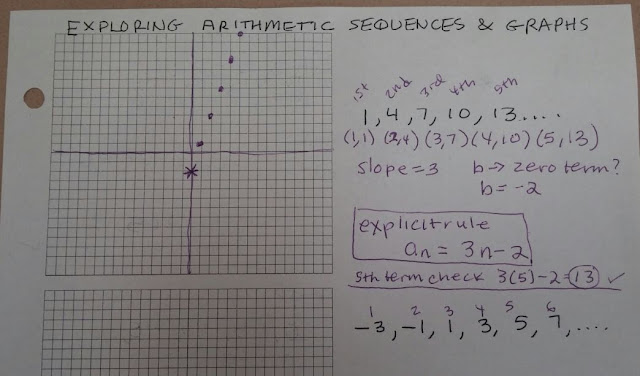 EXPLORING ARITHMETIC SEQUENCES & GRAPHS
1st 2nd 3rd 4th 5th
1, 4, 7, 10, 13....
(1,1) (2,4) (3,7) (4,10) (5,13)
slope = 3 b → zero term?
b = -2
explicit rule
an = 3n - 2
5th term check 3(5) - 2 = 13 ✓
1 2 3 4 5 6
-3, -1, 1, 3, 5, 7, ....